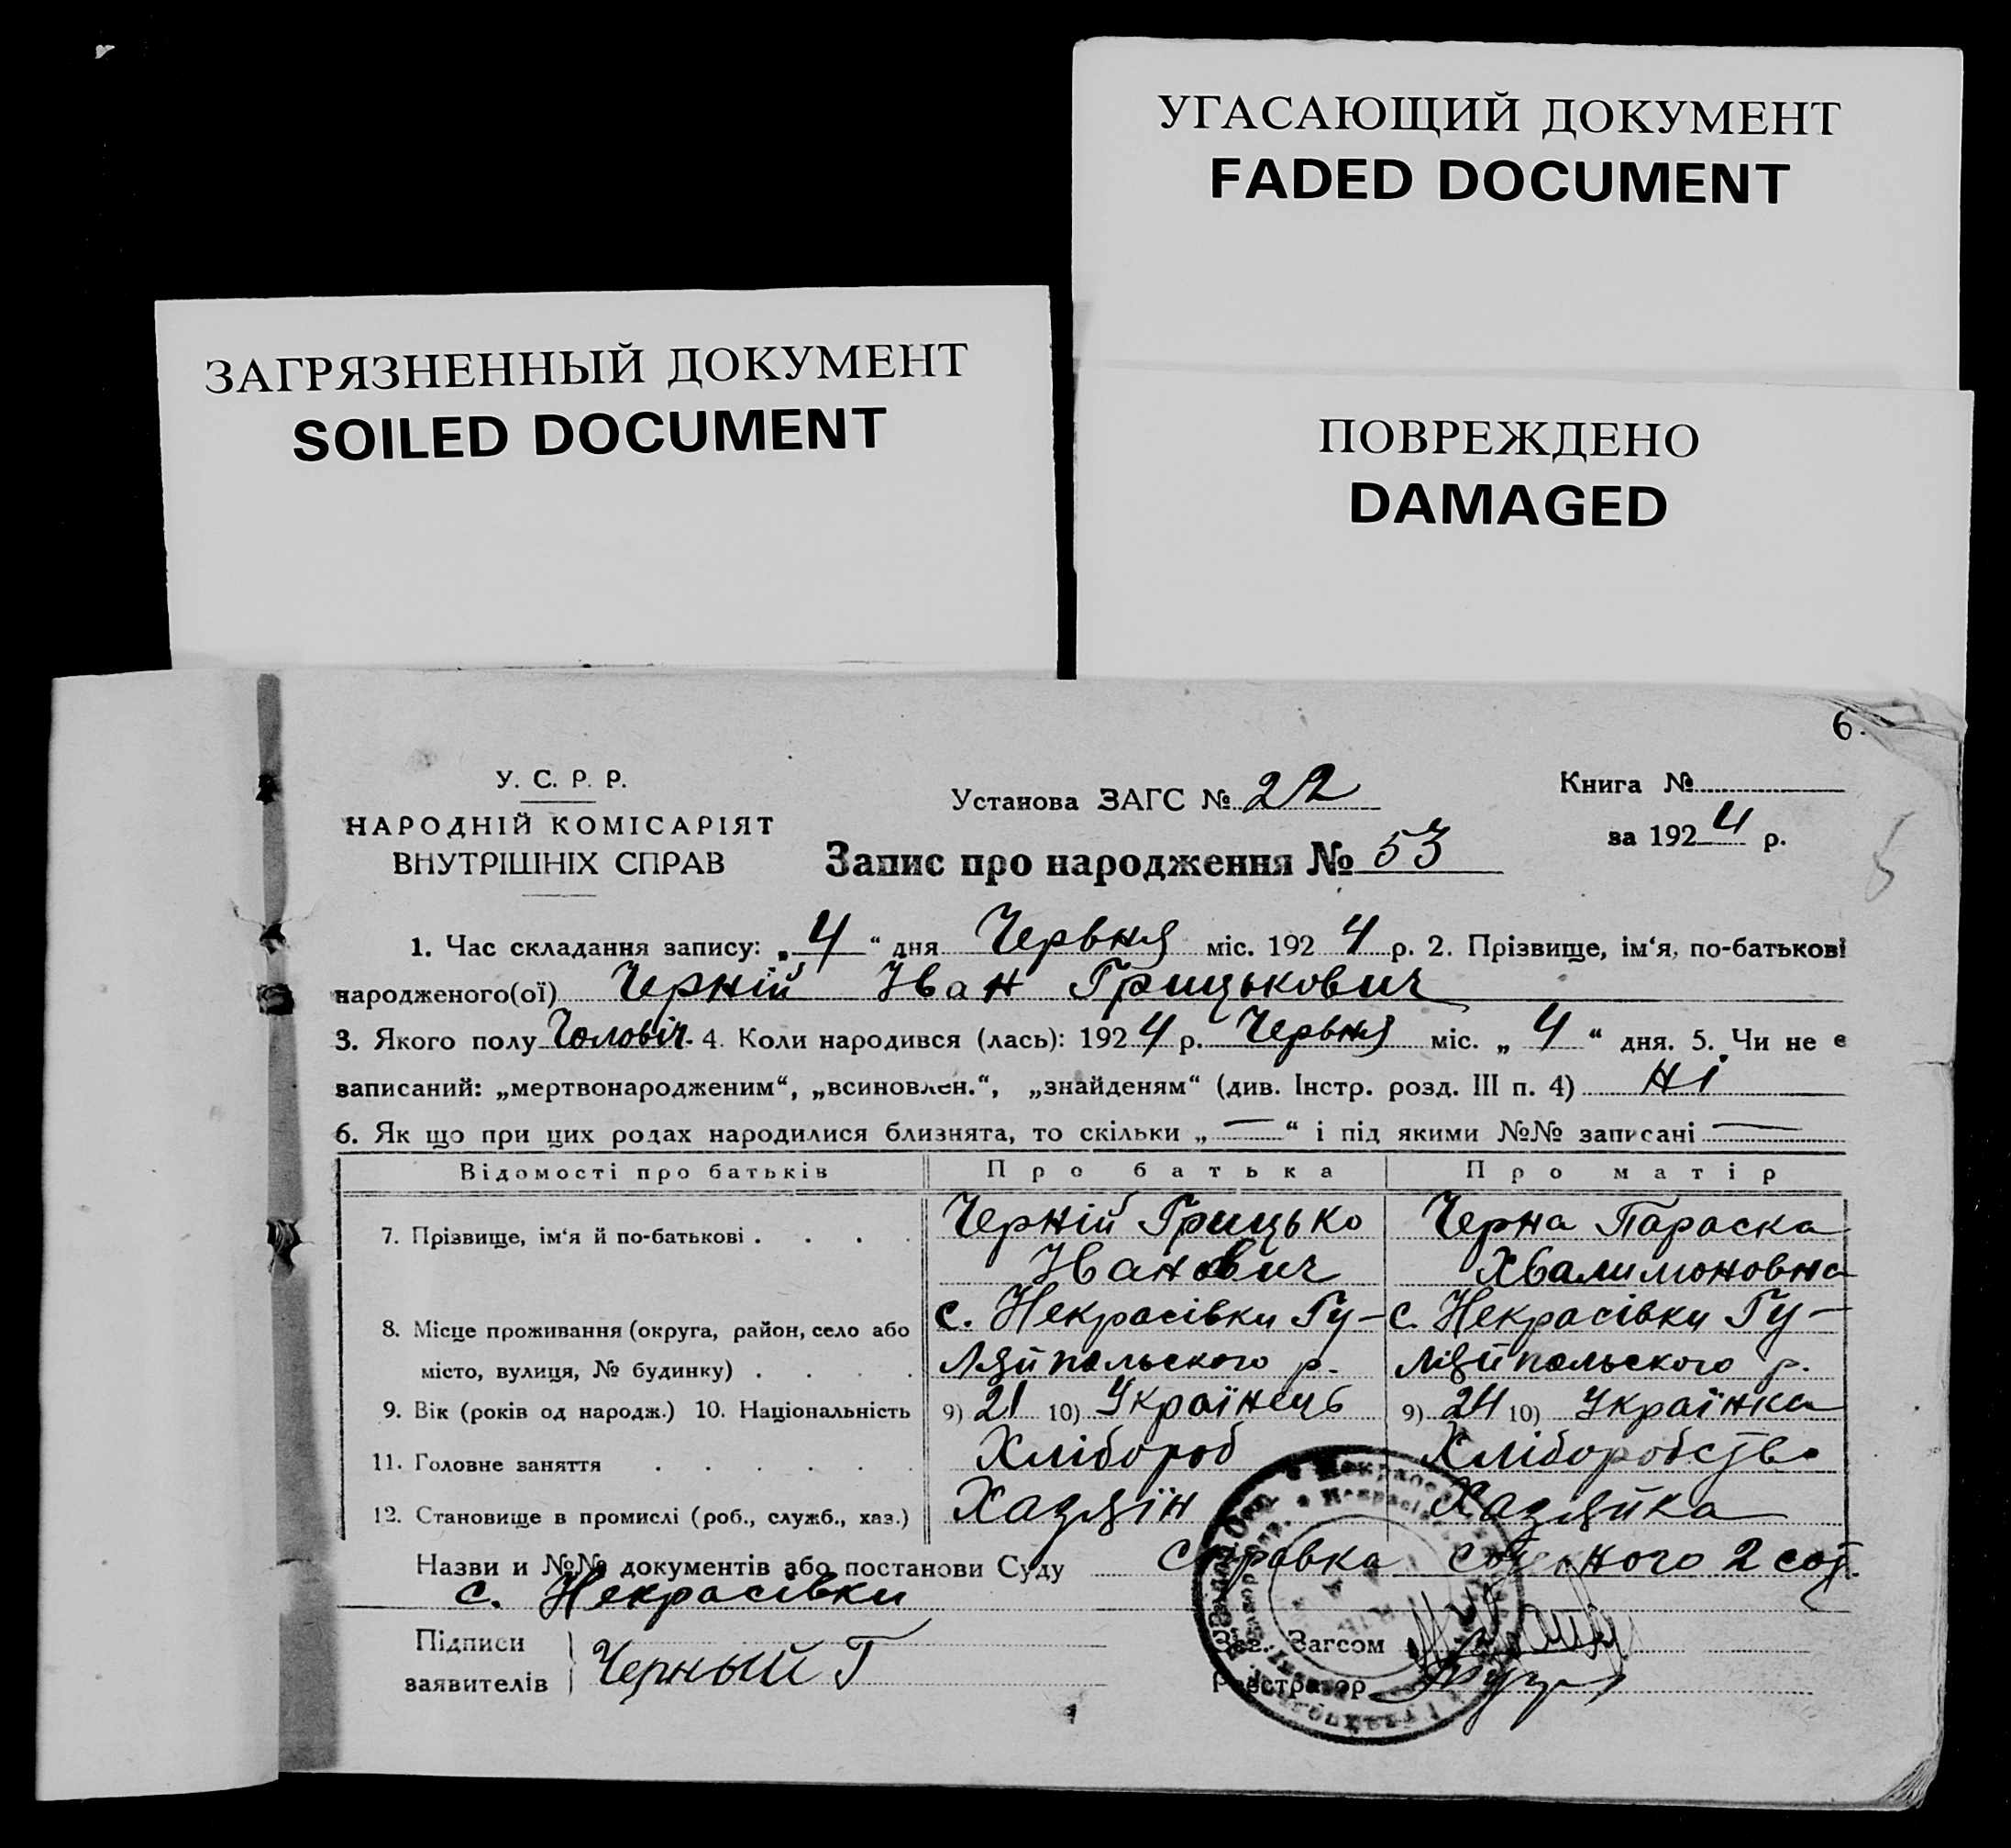 УГАСАЮЩИЙ ДОКУМЕНТ
FADED DOCUMENT
ЗАГРЯЗНЕННЫЙ ДОКУМЕНТ
SOILED DOCUMENT
ПОВРЕЖДЕНО
DAMAGED
6.
У. С. Р. Р.
НАРОДНІЙ КОМІСАРІЯТ
ВНУТРІШНІХ СПРАВ
Установа ЗАГС № 22
Запис про народження № 53
Книга №
за 1924 р.
1. Час складання запису: „4“ дня Червня міс. 1924 р. 2. Прізвище, ім‘я, по-батькові
народженого(ої) Черній Іван Грицькович
3. Якого полу Чоловіч. 4. Коли народився (лась): 1924 р. Червня міс. „4“ дня. 5. Чи не є
записаний: „мертвонародженим“, „всиновлен.“, „знайденям“ (див. Інстр. розд. III п. 4) Ні
6. Як що при цих родах народилися близнята, то скільки „—“ і під якими №№ записані —
Відомості про батьків Про батька Про матір
7. Прізвище, ім‘я й по-батькові . . . . Черній Грицько Черна Параска
Іванович Хвалимоновна
8. Місце проживання (округа, район, село або с. Некрасівки Гу– с. Некрасівки Гу–
місто, вулиця, № будинку) . . . . ляйпольского р. ляйпольского р.
9. Вік (років од народж.) 10. Національність 9) 21 10) Українець 9) 24 10) Українка
11. Головне заняття . . . . . . Хлібороб Хліборобство
12. Становище в промислі (роб., служб., хаз.) Хазяїн Хазяйка
Назви и №№ документів або постанови Суду Справка 2 сот.
с. Некрасівки
Підписи
заявителів Черный Г
Зав. Загсом
Реєстратор